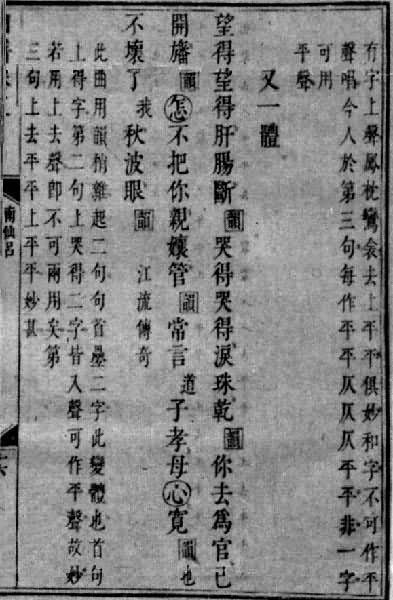 有字上聲鳳枕鴛衾去上平平俱妙和字不可作平
聲唱今人於第三句每作平平仄仄仄平平非一字
可用
平聲
又一體
望得望得肝腸斷韻哭得哭得淚珠乾韻你去爲官已
開旛韻怎不把你親孃管韻常言道子孝母心寬韻也
不壞了我秋波眼韻 江流傳奇
此曲用韻稍雜起二句句首疊二字此變體也首句
上得字第二句上哭得二字皆入聲可作平聲故妙
若用上去聲卽不可兩用矣第
三句上去平平上平平妙甚
南仙呂